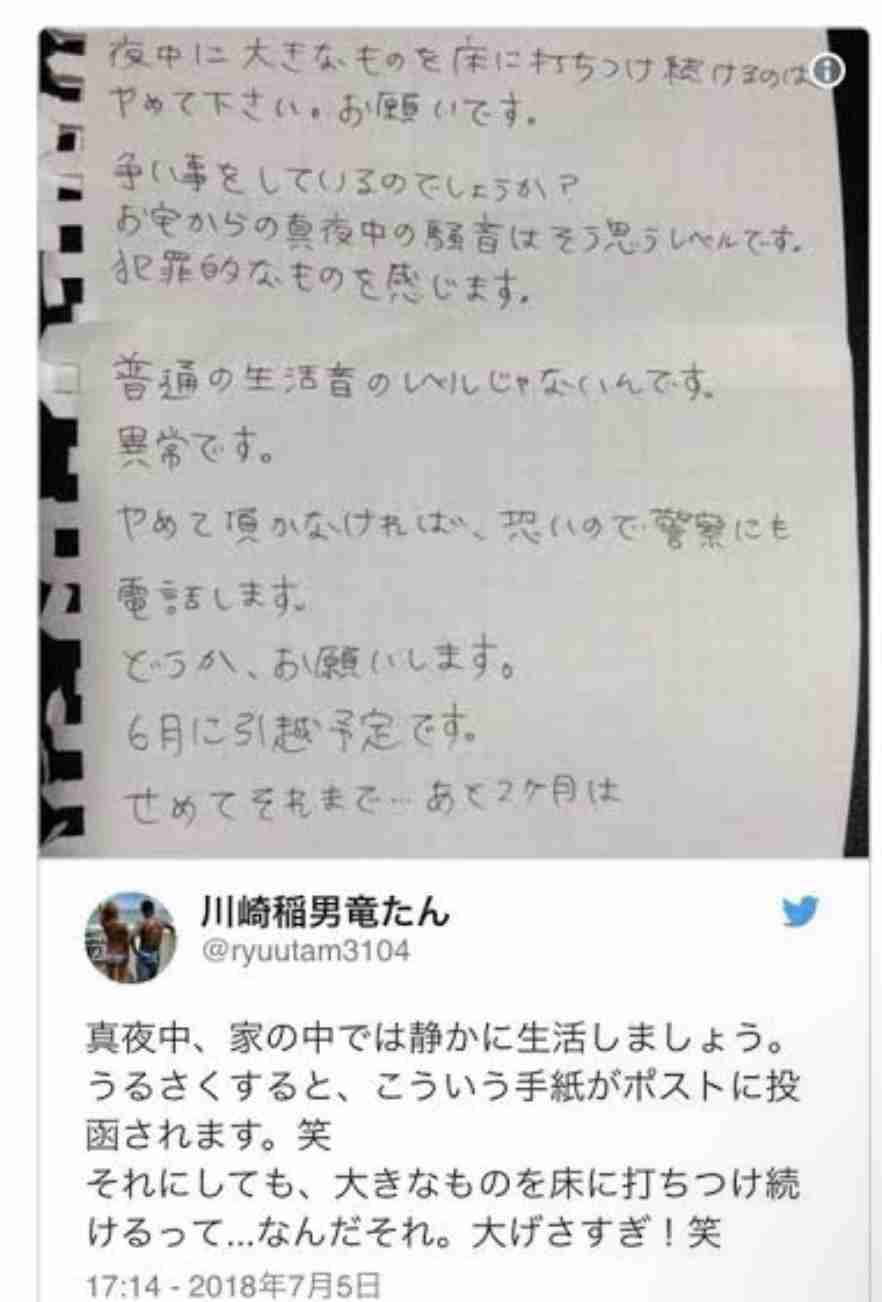 夜中に大きなものを床に打ちつけ続けるのは
やめて下さい。お願いです。
争い事をしているのでしょうか?
お宅からの真夜中の騒音はそう思うレベルです。
犯罪的なものを感じます。
普通の生活音のレベルじゃないんです。
異常です。
やめて頂かなければ、恐いので警察にも
電話します。
どうか、お願いします。
6月に引越予定です。
せめてそれまで…あと2ヶ月は
川崎稲男竜たん
@ryuutam3104
真夜中、家の中では静かに生活しましょう。
うるさくすると、こういう手紙がポストに投
函されます。笑
それにしても、大きなものを床に打ちつけ続
けるって...なんだそれ。大げさすぎ!笑
17:14 - 2018年7月5日